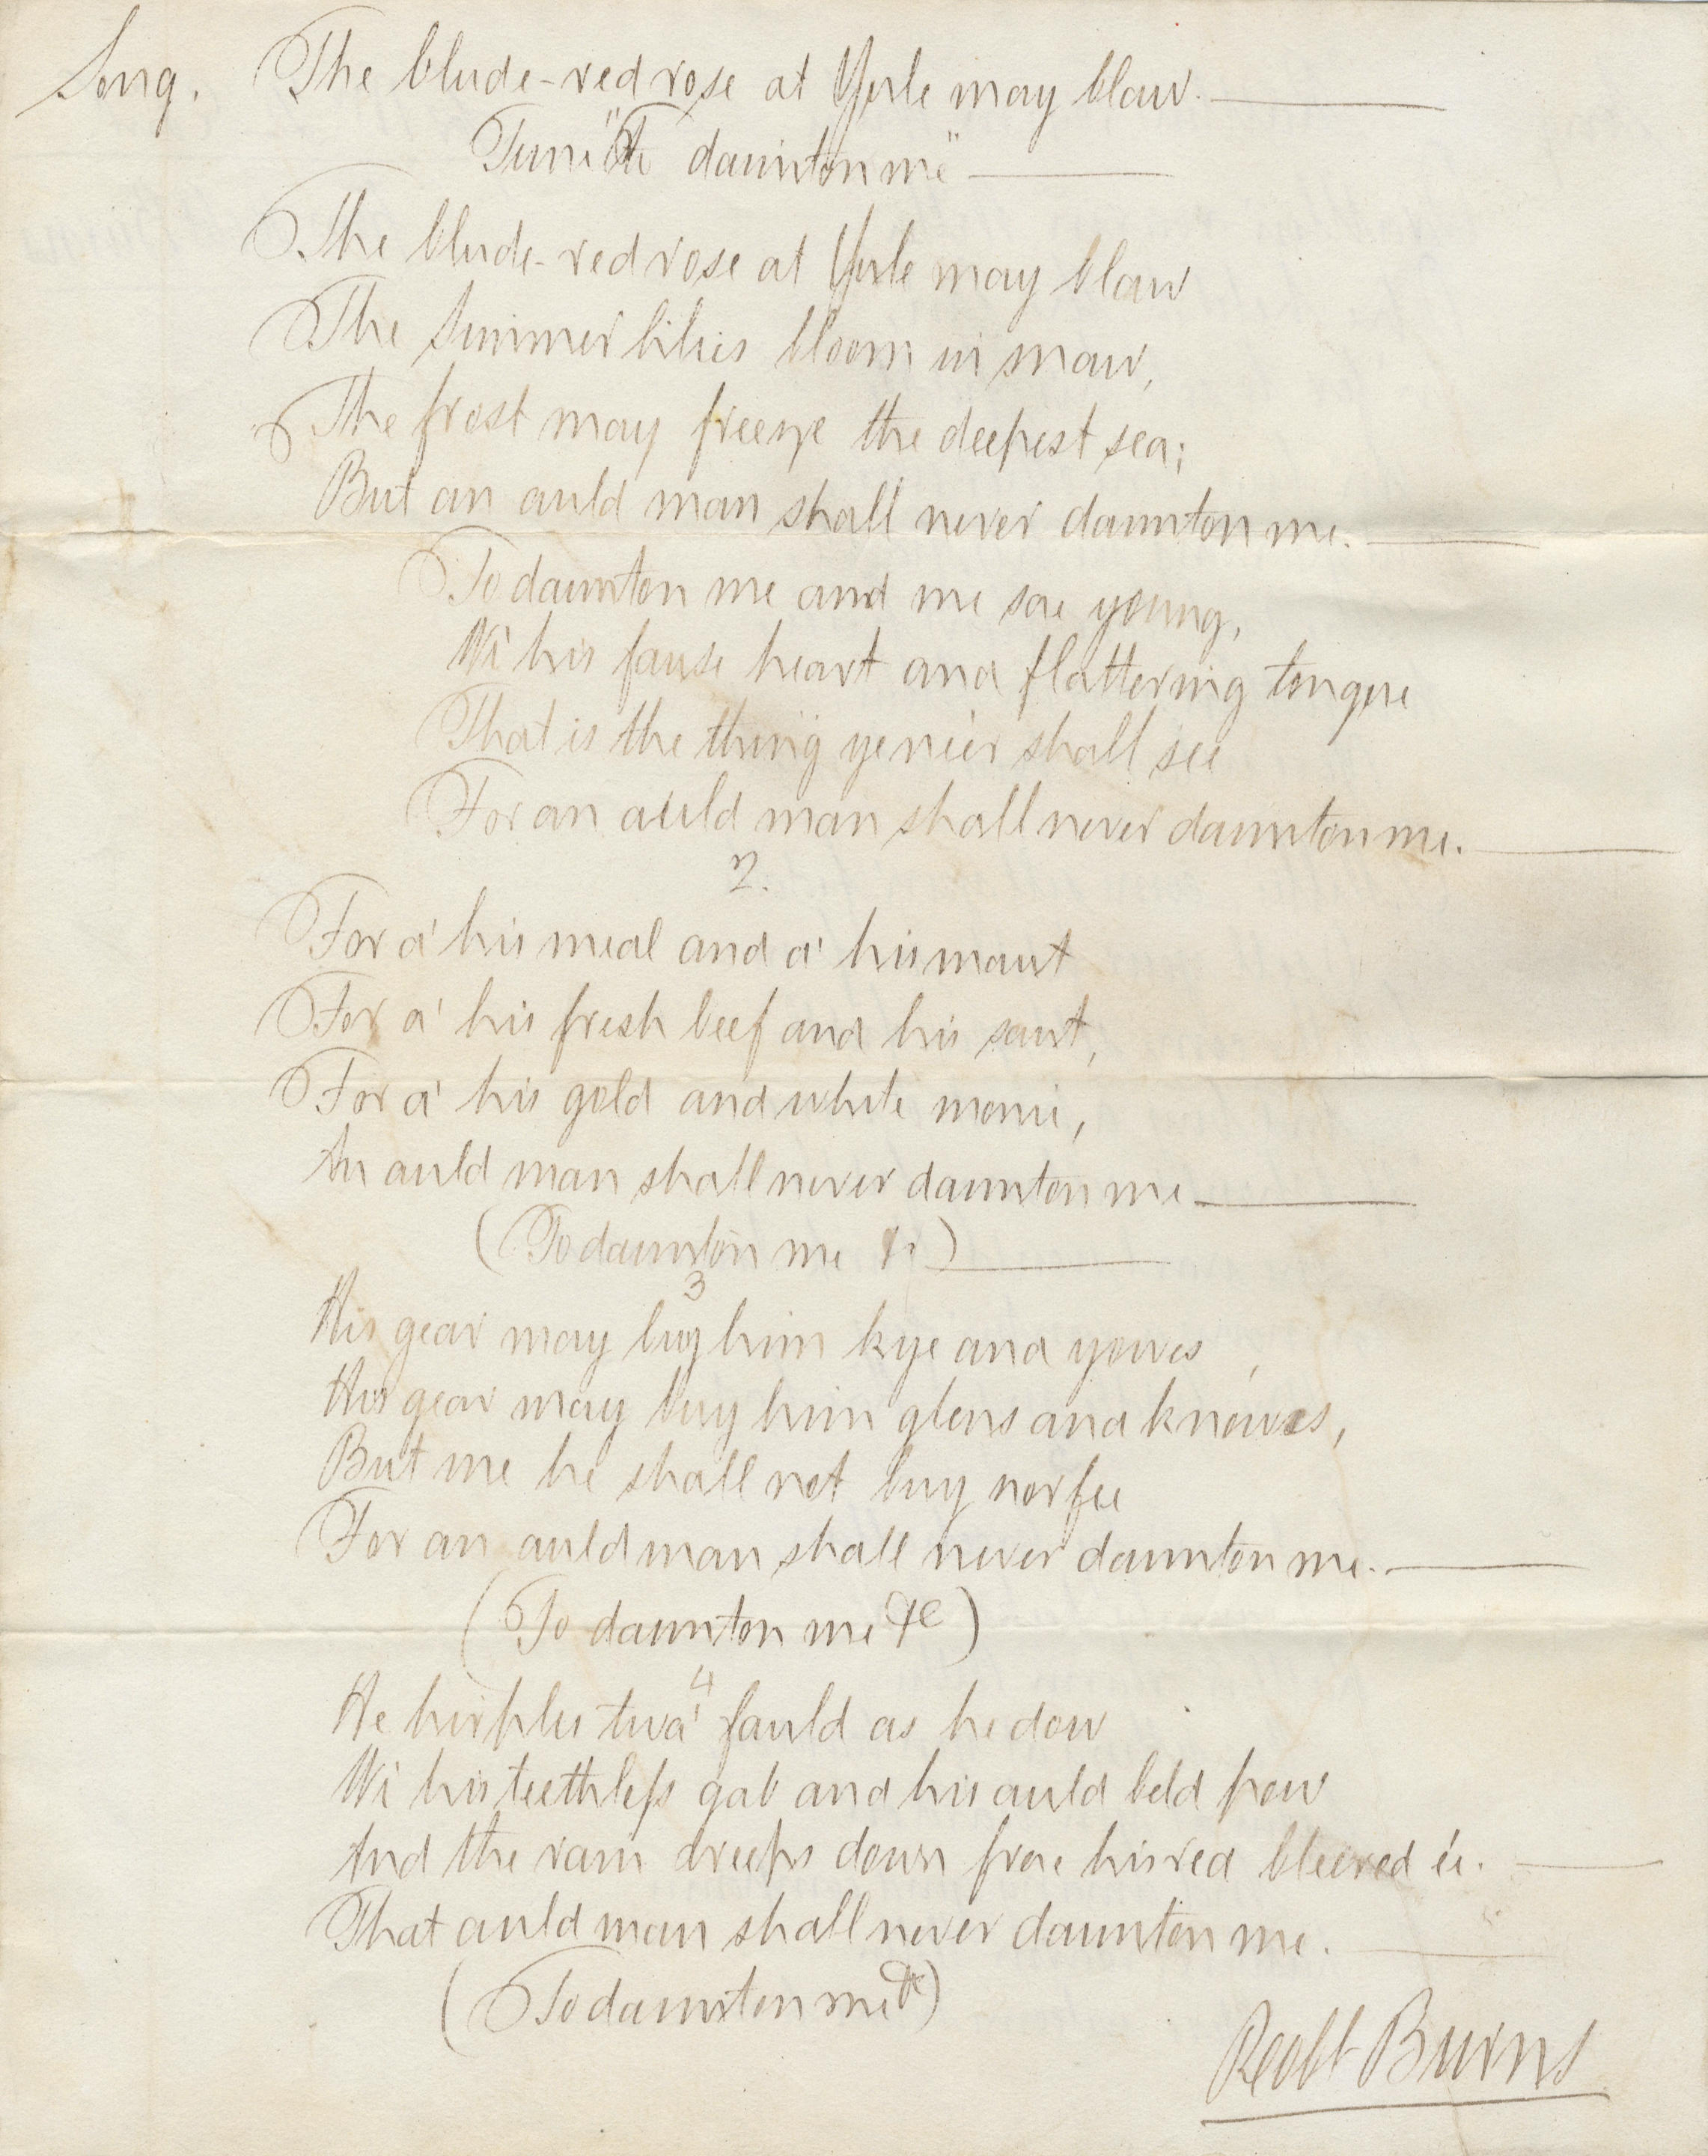 Song. The blude-red rose at Yule may blaw.
Tune "To daunton me"
The blude-red rose at Yule may blaw
The Summer lilies bloom in snaw,
The frost may freeze the deepest sea;
But an auld man shall never daunton me.
To daunton me and me sae young,
Wi' his fause heart and flattering tongue
That is the thing ye ne'er shall see
For an auld man shall never daunton me.
2.
For a' his meal and a' his maut
For a' his fresh beef and his saut,
For a' his gold and white monie,
An auld man shall never daunton me
(To daunton me &c)
3
His gear may buy him kye and yowes,
His gear may buy him glens and knowes,
But me he shall not buy nor fee
For an auld man shall never daunton me.
(To daunton me &c)
4
He hirples twa' fauld as he dow
Wi' his teethless gab and his auld beld pow
And the rain dreeps down frae his red bleered e'e.
That auld man shall never daunton me.
(To daunton me &c)
Robt Burns